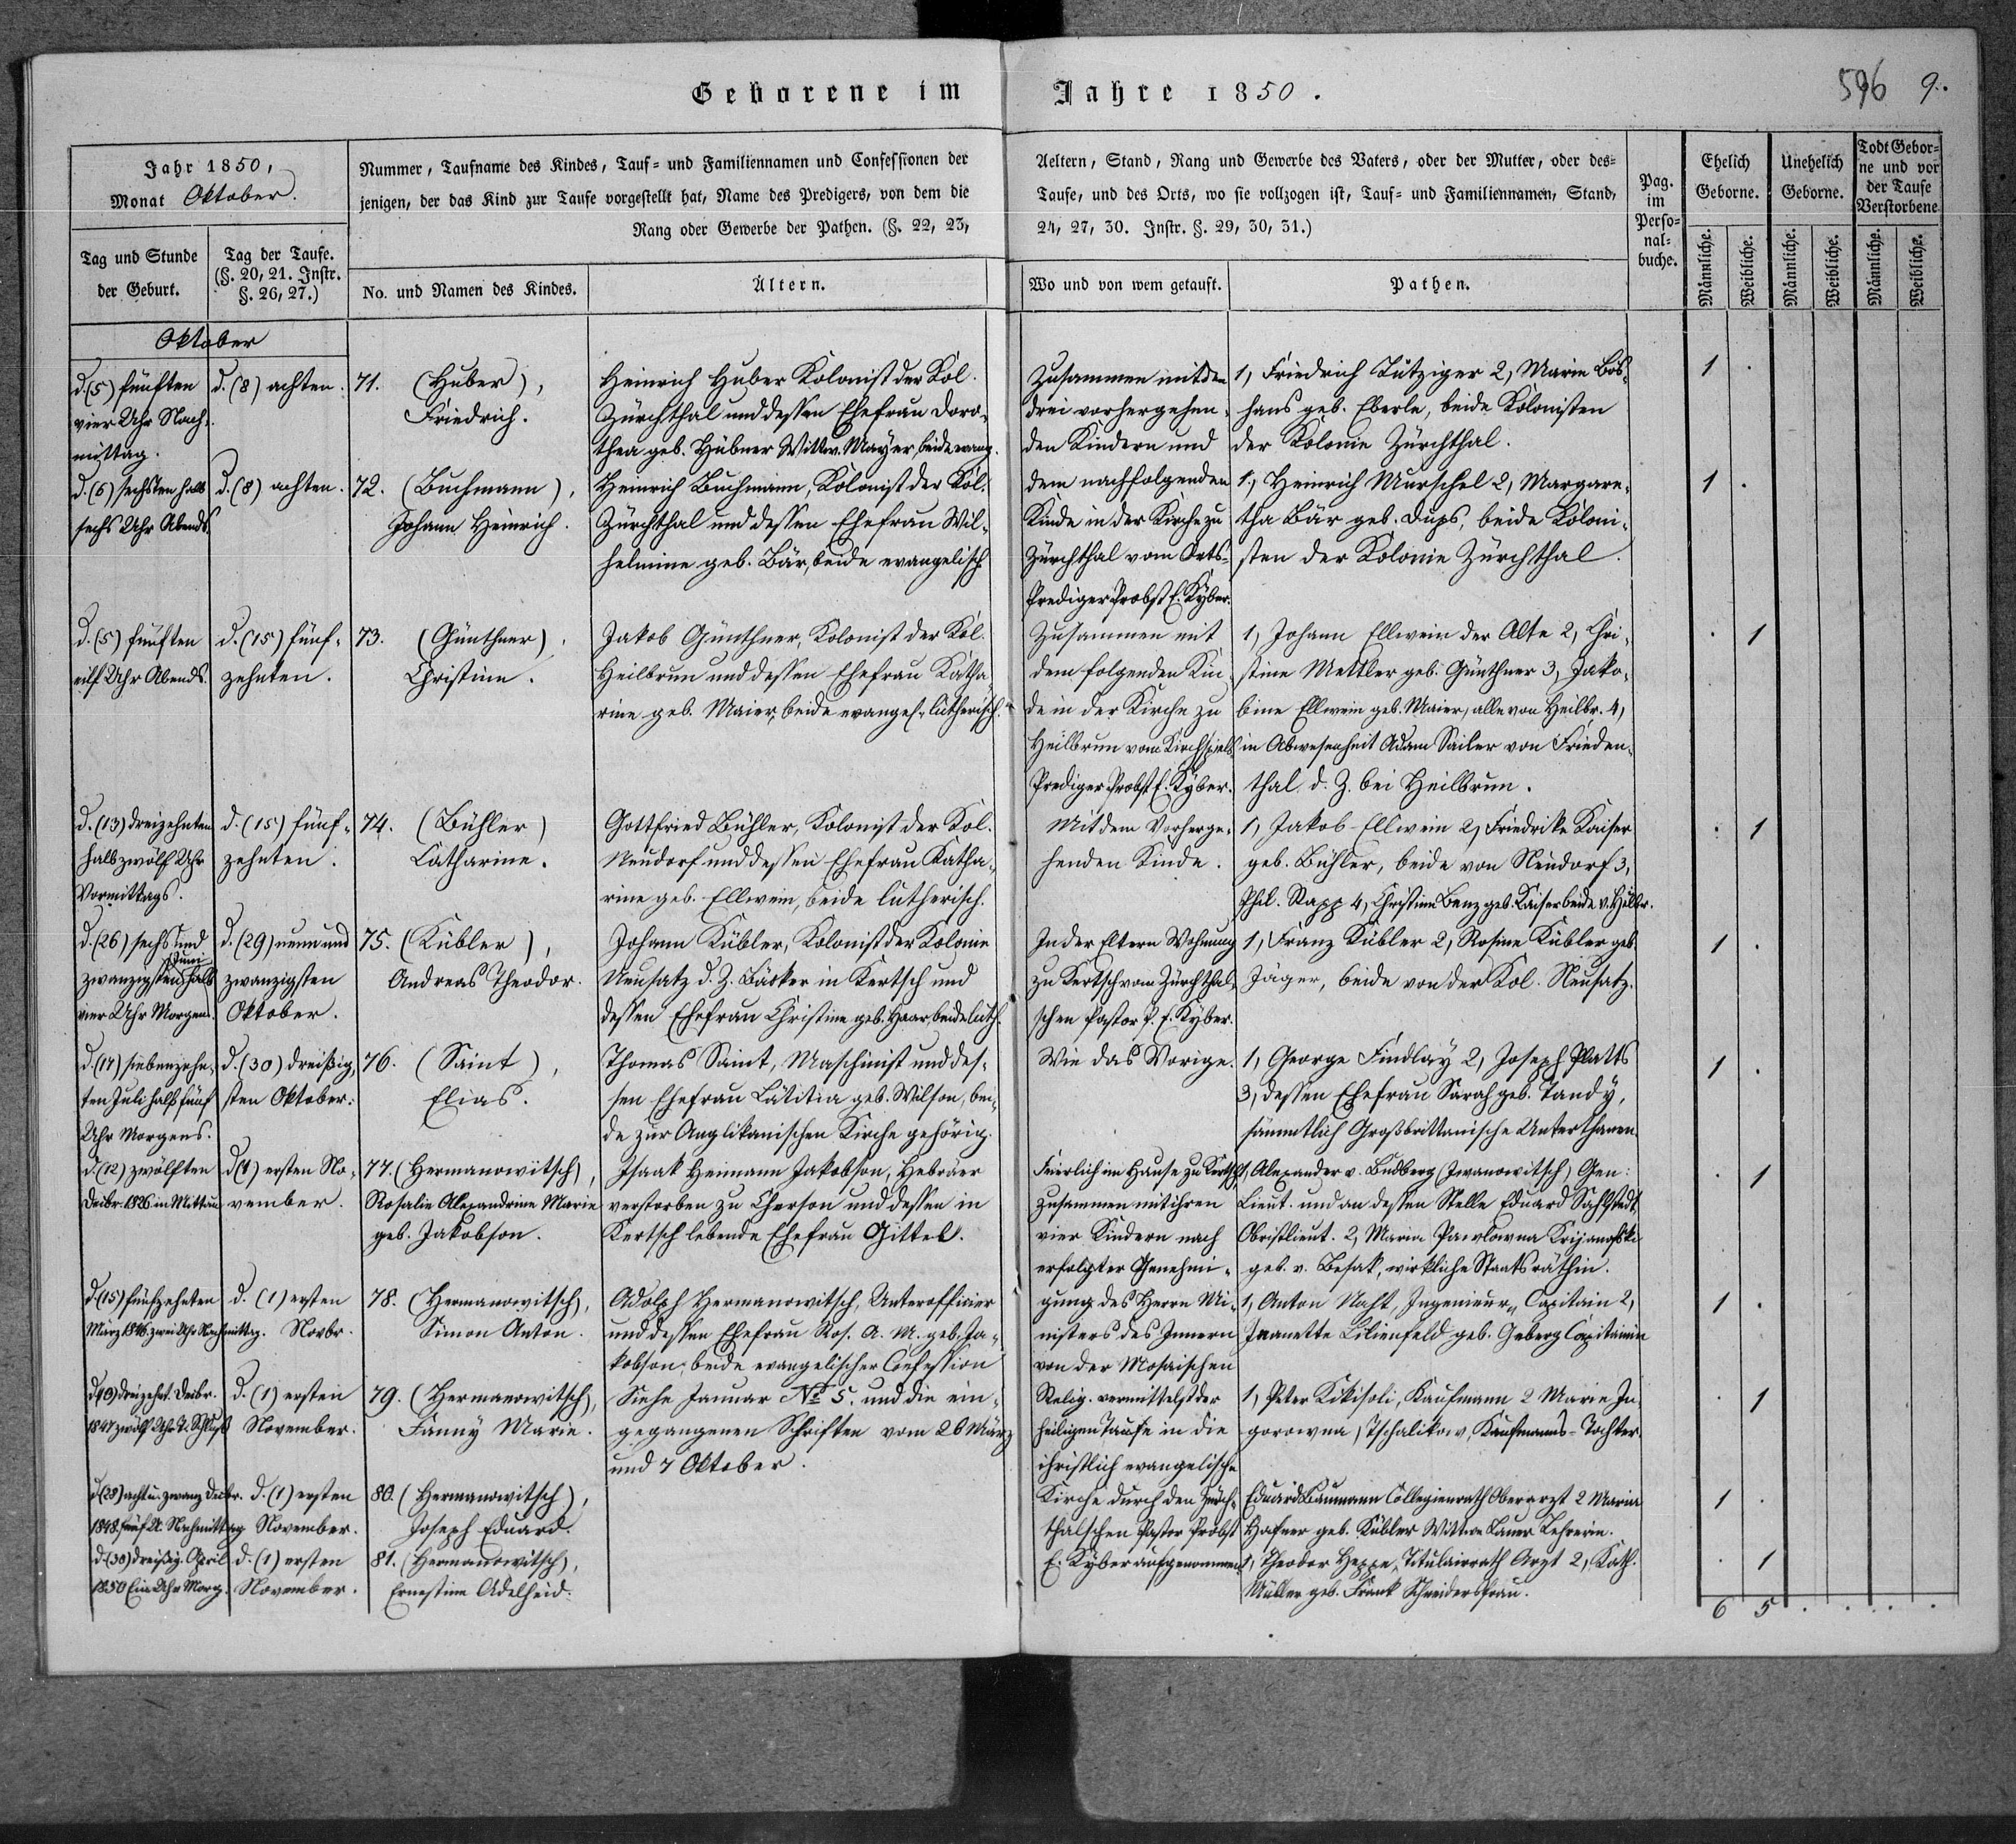 Geborene im Jahre 1850.
596 9.
Jahr 1850,
Monat Oktober.
Tag und Stunde
der Geburt.
Tag der Taufe.
(§. 20, 21. Instr.
§. 26, 27.)
Nummer, Taufname des Kindes, Tauf- und Familiennamen und Confessionen der
jenigen, der das Kind zur Taufe vorgestellt hat, Name des Predigers, von dem die
Rang oder Gewerbe der Pathen. (§. 22, 23,
No. und Namen des Kindes.
Ältern.
Aeltern, Stand, Rang und Gewerbe des Vaters, oder der Mutter, oder des-
Taufe, und des Orts, wo sie vollzogen ist, Tauf- und Familiennamen, Stand,
24, 27, 30. Instr. §. 29, 30, 31.)
Wo und von wem getauft.
Pathen.
Pag.
im
Perso-
nal-
buche.
Ehelich
Geborne.
Unehelich
Geborne.
Todt Gebor-
ne und vor
der Taufe
Verstorbene
Männliche.
Weibliche.
Männliche.
Weibliche.
Männliche.
Weibliche.
Oktober
d. (5) fünften
vier Uhr Nach-
mittag.
d. (8) achten.
71. (Huber),
Friedrich.
Heinrich Huber Kolonist der Kol.
Zürchthal und dessen Ehefrau Doro-
thea geb. Hübner Wittw. Mayer, beide evang.
Zusammen mit den
drei vorhergehen-
den Kindern und
1, Friedrich Lütziger 2, Marie Bos-
hans geb. Eberle, beide Kolonisten
der Kolonie Zürchthal.
1 .
d. (6) sechsten halb
sechs Uhr Abends.
d. (8) achten.
72. (Buchmann),
Johann Heinrich.
Heinrich Buchmann, Kolonist der Kol.
Zürchthal und dessen Ehefrau Wil-
helmine geb. Bär, beide evangelisch
dem nachfolgenden
Kinde in der Kirche zu
Zürchthal vom Orts-
Prediger Probst E. Kyber.
1, Heinrich Murschel 2, Margare-
tha Bär geb. Dups, beide Koloni-
sten der Kolonie Zürchthal.
1 .
d. (5) fünften
eilf Uhr Abends.
d. (15) fünf-
zehnten.
73. (Günthner),
Christine.
Jakob Günthner, Kolonist der Kol.
Heilbrun und dessen Ehefrau Katha-
rine geb. Maier, beide evangel-lutherisch.
Zusammen mit
dem folgenden Kin-
de in der Kirche zu
Heilbrun vom Kirchspiels
Prediger Probst E. Kyber.
1, Johann Ellwein der Alte 2, Chri-
stine Mettler geb. Günthner 3, Jako-
bine Ellwein geb. Maier, alle von Heilbr. 4,
in Abwesenheit Adam Sailer von Frieden-
thal d. Z. bei Heilbrun.
. 1
d. (13) dreizehnten
halb zwölf Uhr
Vormittags.
d. (15) fünf-
zehnten.
74. (Bühler)
Catharine.
Gottfried Bühler, Kolonist der Kol.
Neudorf und dessen Ehefrau Katha-
rine geb. Ellwein, beide lutherisch.
Mit dem Vorherge-
henden Kinde.
1, Jakob Ellwein 2, Friedrike Kaiser
geb. Bühler, beide von Neudorf 3,
Phil. Rapp 4, Christine Benz geb. Kaiser beide v. Heilbr.
. 1
d. (26) sechs und
zwanzigsten Juni halb
vier Uhr Morgens.
d. (29) neun und
zwanzigsten
Oktober.
75. (Kübler),
Andreas Theodor.
Johann Kübler, Kolonist der Kolonie
Neusatz d. Z. Bäcker in Kertsch und
dessen Ehefrau Christine geb. Haar, beide luth.
In der Eltern Wohnung
zu Kertsch vom Zürchthal-
schen Pastor P. E. Kyber.
1, Franz Kübler 2, Rosine Kübler geb.
Jäger, beide von der Kol. Neusatz.
1 .
d. (17) siebenzehn-
ten Juli halb fünf
Uhr Morgens.
d. (30) dreißig-
sten Oktober.
76. (Saint),
Elias.
Thomas Saint, Maschinist und des-
sen Ehefrau Lätitia geb. Wilson, bei-
de zur Anglikanischen Kirche gehörig.
Wie das Vorige.
1, George Findlay 2, Joseph Platts
3, dessen Ehefrau Sarah geb. Tandy,
sämmtlich Großbrittanische Unterthanen.
1 .
d. (12) zwölften
Decbr. 1826 in Mittau
d. (1) ersten No-
vember.
77. (Hermanowitsch),
Rosalie Alexandrine Marie
geb. Jakobson.
Isaak Heimann Jakobson, Hebräer
verstorben zu Cherson und dessen in
Kertsch lebende Ehefrau Gittel.
Feierlich im Hause zu Kertsch
zusammen mit ihren
vier Kindern nach
erfolgter Genehmi-
1, Alexander v. Budberg (Iwanowitsch) Gen:
Lieut. und an dessen Stelle Eduard Sahlstedt
Obristlieut. 2, Maria Pawlowna
geb. v. Besak, wirkliche Staatsräthin.
. 1
d. (15) fünfzehnten
März 1846. zwei Uhr Nachmittag.
d. (1) ersten
Novbr.
78. (Hermanowitsch),
Simon Anton.
Adolph Hermanowitsch, Unterofficier
und dessen Ehefrau Ros. A. M. geb. Ja-
kobson, beide evangelischer Confession
gung des Herrn Mi-
nisters des Innern
von der Mosaischen
1, Anton Naht, Ingenieur-Capitain 2,
Jeanette Lilienfeld geb. Geberg Capitainin
1 .
dreizehnt. Decbr.
1847 zwölf Uhr
d. (1) ersten
November.
79. (Hermanowitsch),
Fanny Marie.
Siehe Januar No 5. und die ein-
gegangenen Schriften vom 26 März
und 7 Oktober.
Relig. vermittelst der
heiligen Taufe in die
christlich evangelische
1, Peter Kikisoli, Kaufmann 2 Marie
gorowna Tschalikow, Kaufmanns-Tochter.
. 1
d. (28) acht u. zwanz. Decbr.
1848. fünf U. Nachmittag
d. (1) ersten
November.
80. (Hermanowitsch),
Joseph Eduard.
Kirche durch den Zürch-
thalschen Pastor Probst
Eduard Baumann Collegienrath Oberarzt 2 Maria
Hafner geb. Kübler Wittwe Lehrerin.
1 .
d. (30) dreißig. April
1850 Ein Uhr Morg.
d. (1) ersten
November.
81. (Hermanowitsch),
Ernestine Adelheid.
E. Kyber aufgenommen.
1, Theodor Heppe, Titulairrath Arzt 2, Kath.
Müller geb. Frank Schneidersfrau.
. 1
6 5 . . . .